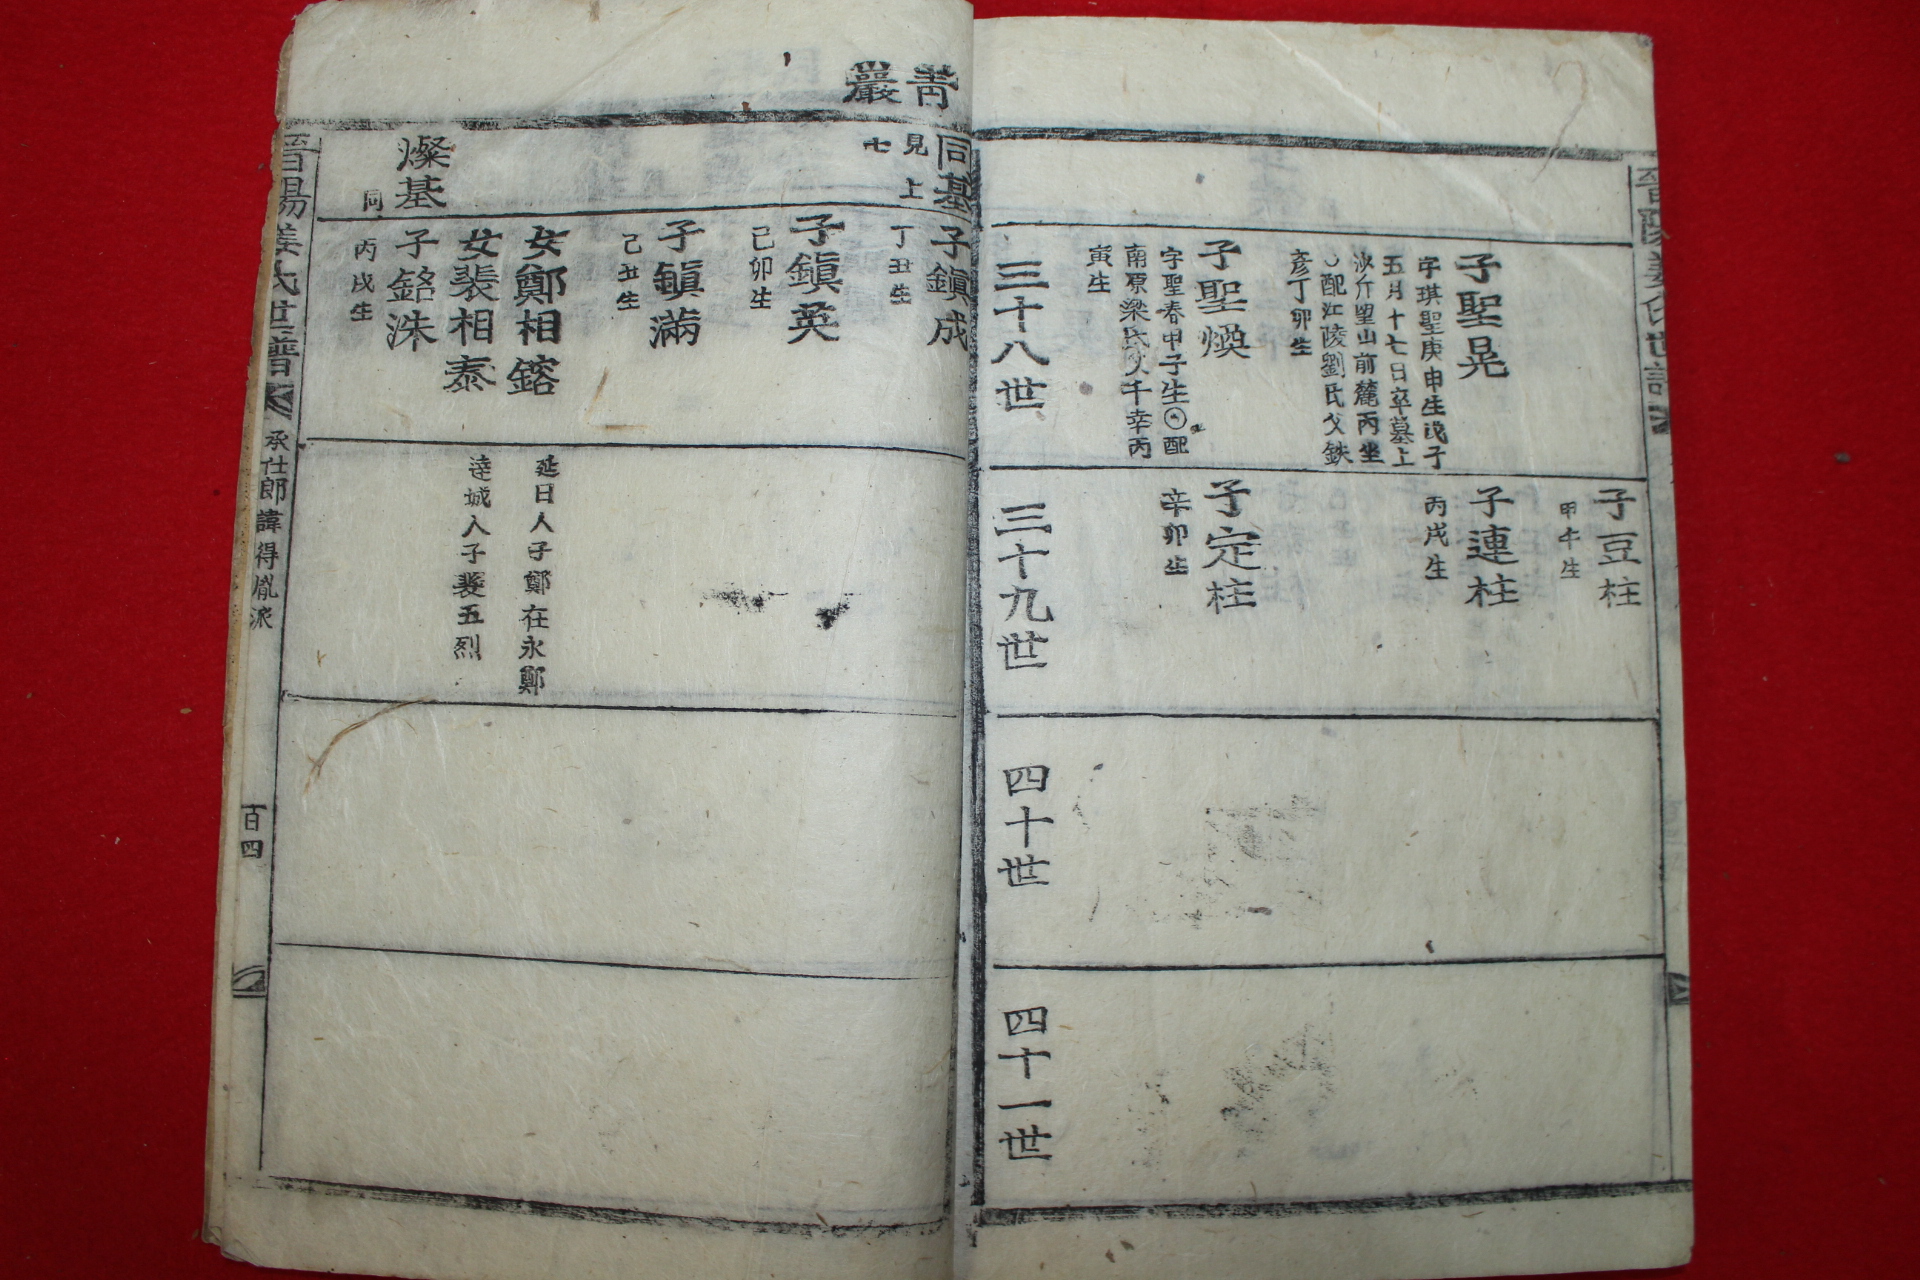 子豆柱
甲午生
子聖晃
字琪聖庚申生戊子
五月十七日卒墓上
沙斤里山前麓丙坐
配江陵劉氏父鉄
彦丁卯生
子連柱
丙戌生
子聖煥
字聖春甲子生配
南原梁氏父千幸丙
寅生
子定柱
辛卯生
三十八世
三十九世
四十世
四十一世
靑巖
同基
見上
七
子鎭成
丁丑生
子鎭英
己卯生
子鎭滿
己丑生
女鄭相鎔
延日人子鄭在永鄭
女裴相泰
達城人子裴五烈
燦基
同
子銘洙
丙戌生
晉陽姜氏世譜
承仕郎諱得胤派
百四